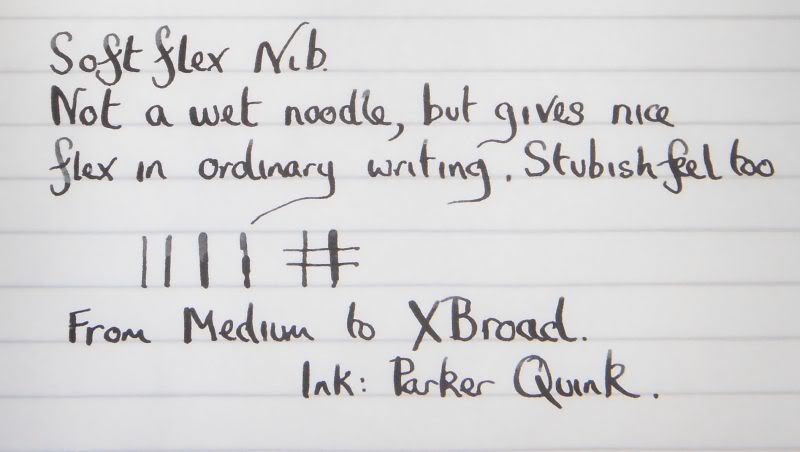 Soft flex Nib.
Not a wet noodle, but gives nice
flex in ordinary writing. Stubish feel too
From Medium to XBroad.
Ink: Parker Quink.